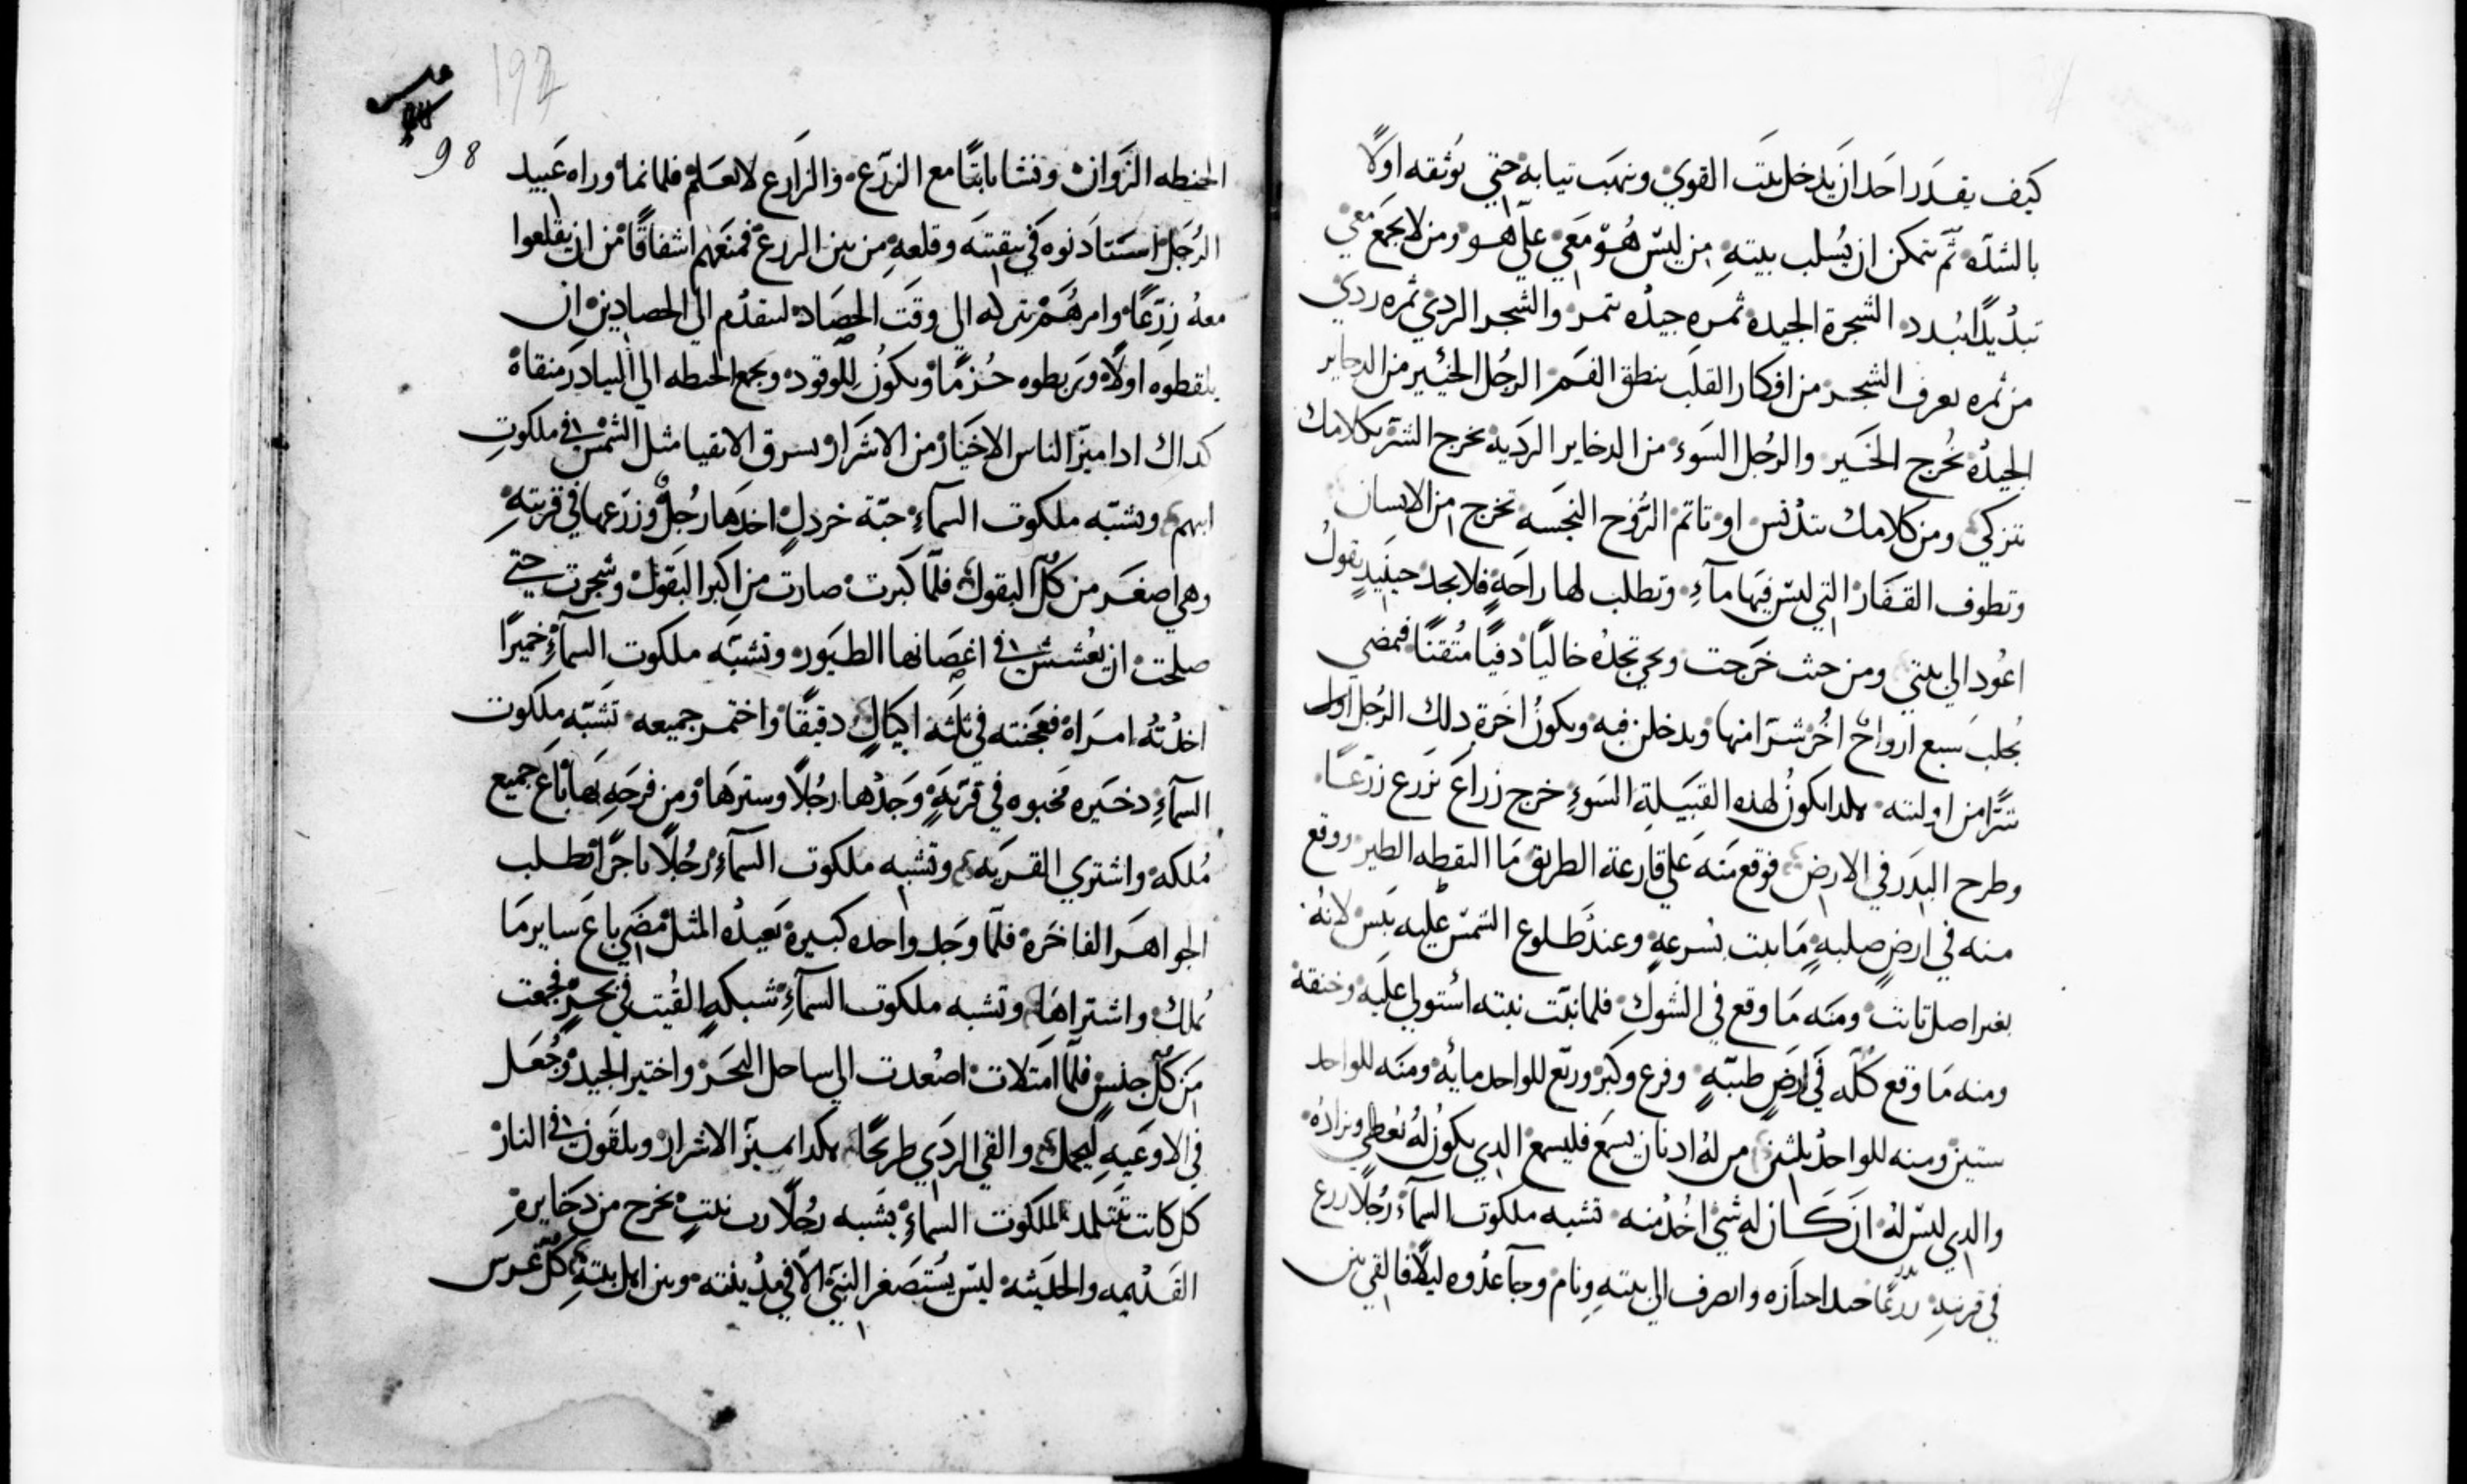 كيف يقدر احد ان يدخل بيت القوي وينهب تيابه حتي يوثقه اولًا
بالشده ثم يتمكن ان يسلب بيته من ليس هو معي علي هو ومن لا يجمع معي
تبديدًا يبدد الشجرة الجيده ثمره جيده تتمر والشجر الردي ثمره ردي
من ثمره يعرف الشجر من افكار القلب ينطق الفم الرجل الخير من الدخاير
الجيده يخرج الخير والرجل السوء من الدخاير الرديه يخرج الشر بكلامك
تتزكي ومن كلامك تتدنس او تاتم الروح النجسه تخرج من الانسان
وتطوف القفار التي ليس فيها مآء وتطلب لها راحة فلا تجد حينيد يقول
اعود الي بيتي ومن حيث خرجت وتجي تجده خاليًا دفيًا متقنًا فتمضي
تجلب سبع ارواح اخر شرا منها ويدخلن فيه ويكون اخرة دلك الرجل
شرًا من اولته هكدا يكون لهده القبيلة السوء خرج زراع يزرع زرعًا
وطرح البدر في الارض فوقع منه علي قارعة الطريق ما التقطه الطير ووقع
منه في ارض صلبه ما نبت بسرعه وعند طلوع الشمس عليه يبس لانه
بغير اصل تابت ومنه ما وقع في الشوك فلما نبت نبته استولي عليه وخنقه
ومنه ما وقع كله في ارض طيبه وفرع وكبر وريع للواحد مايه ومنه للواحد
ستين ومنه للواحد ثلثين من له ادنان يسمع فليسمع الدي يكون له يعطي ويزاده
والدي ليس له ان كان له شي اخد منه تشبه ملكوت السمآء رجلًا زرع
في قريته زرعًا جيدا وانصرف الي بيته ونام وجآ عدوه ليلًا فالقي بين
98
الحنطه الزوان ونشا نابتًا مع الزرع والزارع لا يعلم فلما نما وراه عبيد
الرجل استادنوه في تنقيته وقلعه من بين الزرع فمنعهم اشفاقًا من ان يقلعوا
معه زرعًا وامرهم بتركه الي وقت الحصاد ليتقدم الي الحصادين ان
يلقطوه اولًا ويربطوه حزمًا ويكون للوقود ويجمع الحنطه الي البيادر منقاة
كداك ادا ميز الناس الاخيار من الاشرار يسرق الاتقيا مثل الشمس في ملكوت
ابيهم وتشبه ملكوت السمآء حبة خردل اخدها رجل وزرعها في قريته
وهي اصغر من كل البقول فلما كبرت صارت من اكبر البقول وشجرت حتي
صلحت ان يعشش في اغصانها الطيور وتشبه ملكوت السمآء خميرًا
اخدته امراة فعجنته في ثلثه اكيال دقيقًا واختمر جميعه تشبه ملكوت
السمآء دخيره مخبوه في قرية وجدها رجلًا وسترها ومن فرحه بها باع جميع
ملكه واشتري القريه وتشبه ملكوت السمآء رجلًا تاجرًا تطلب
الجواهر الفاخره فلما وجد واحده كبيرة بعيده المثل مضي باع ساير ما
يملك واشتراها وتشبه ملكوت السمآء شبكه القيت في بحر فجمعت
من كل جنس فلما امتلات اصعدت الي ساحل البحر واختير الجيد وجعل
في الاوعيه ليحمل والقي الردي طريحًا هكدا يميز الاشرار ويلقون في النار
كل كاتب تتلمد لملكوت السمآء يشبه رجلًا رب بيت يخرج من دخايره
القديمه والحديثه ليس يستصغر النبي الا في مدينته وبين اهل بيته كل غرس